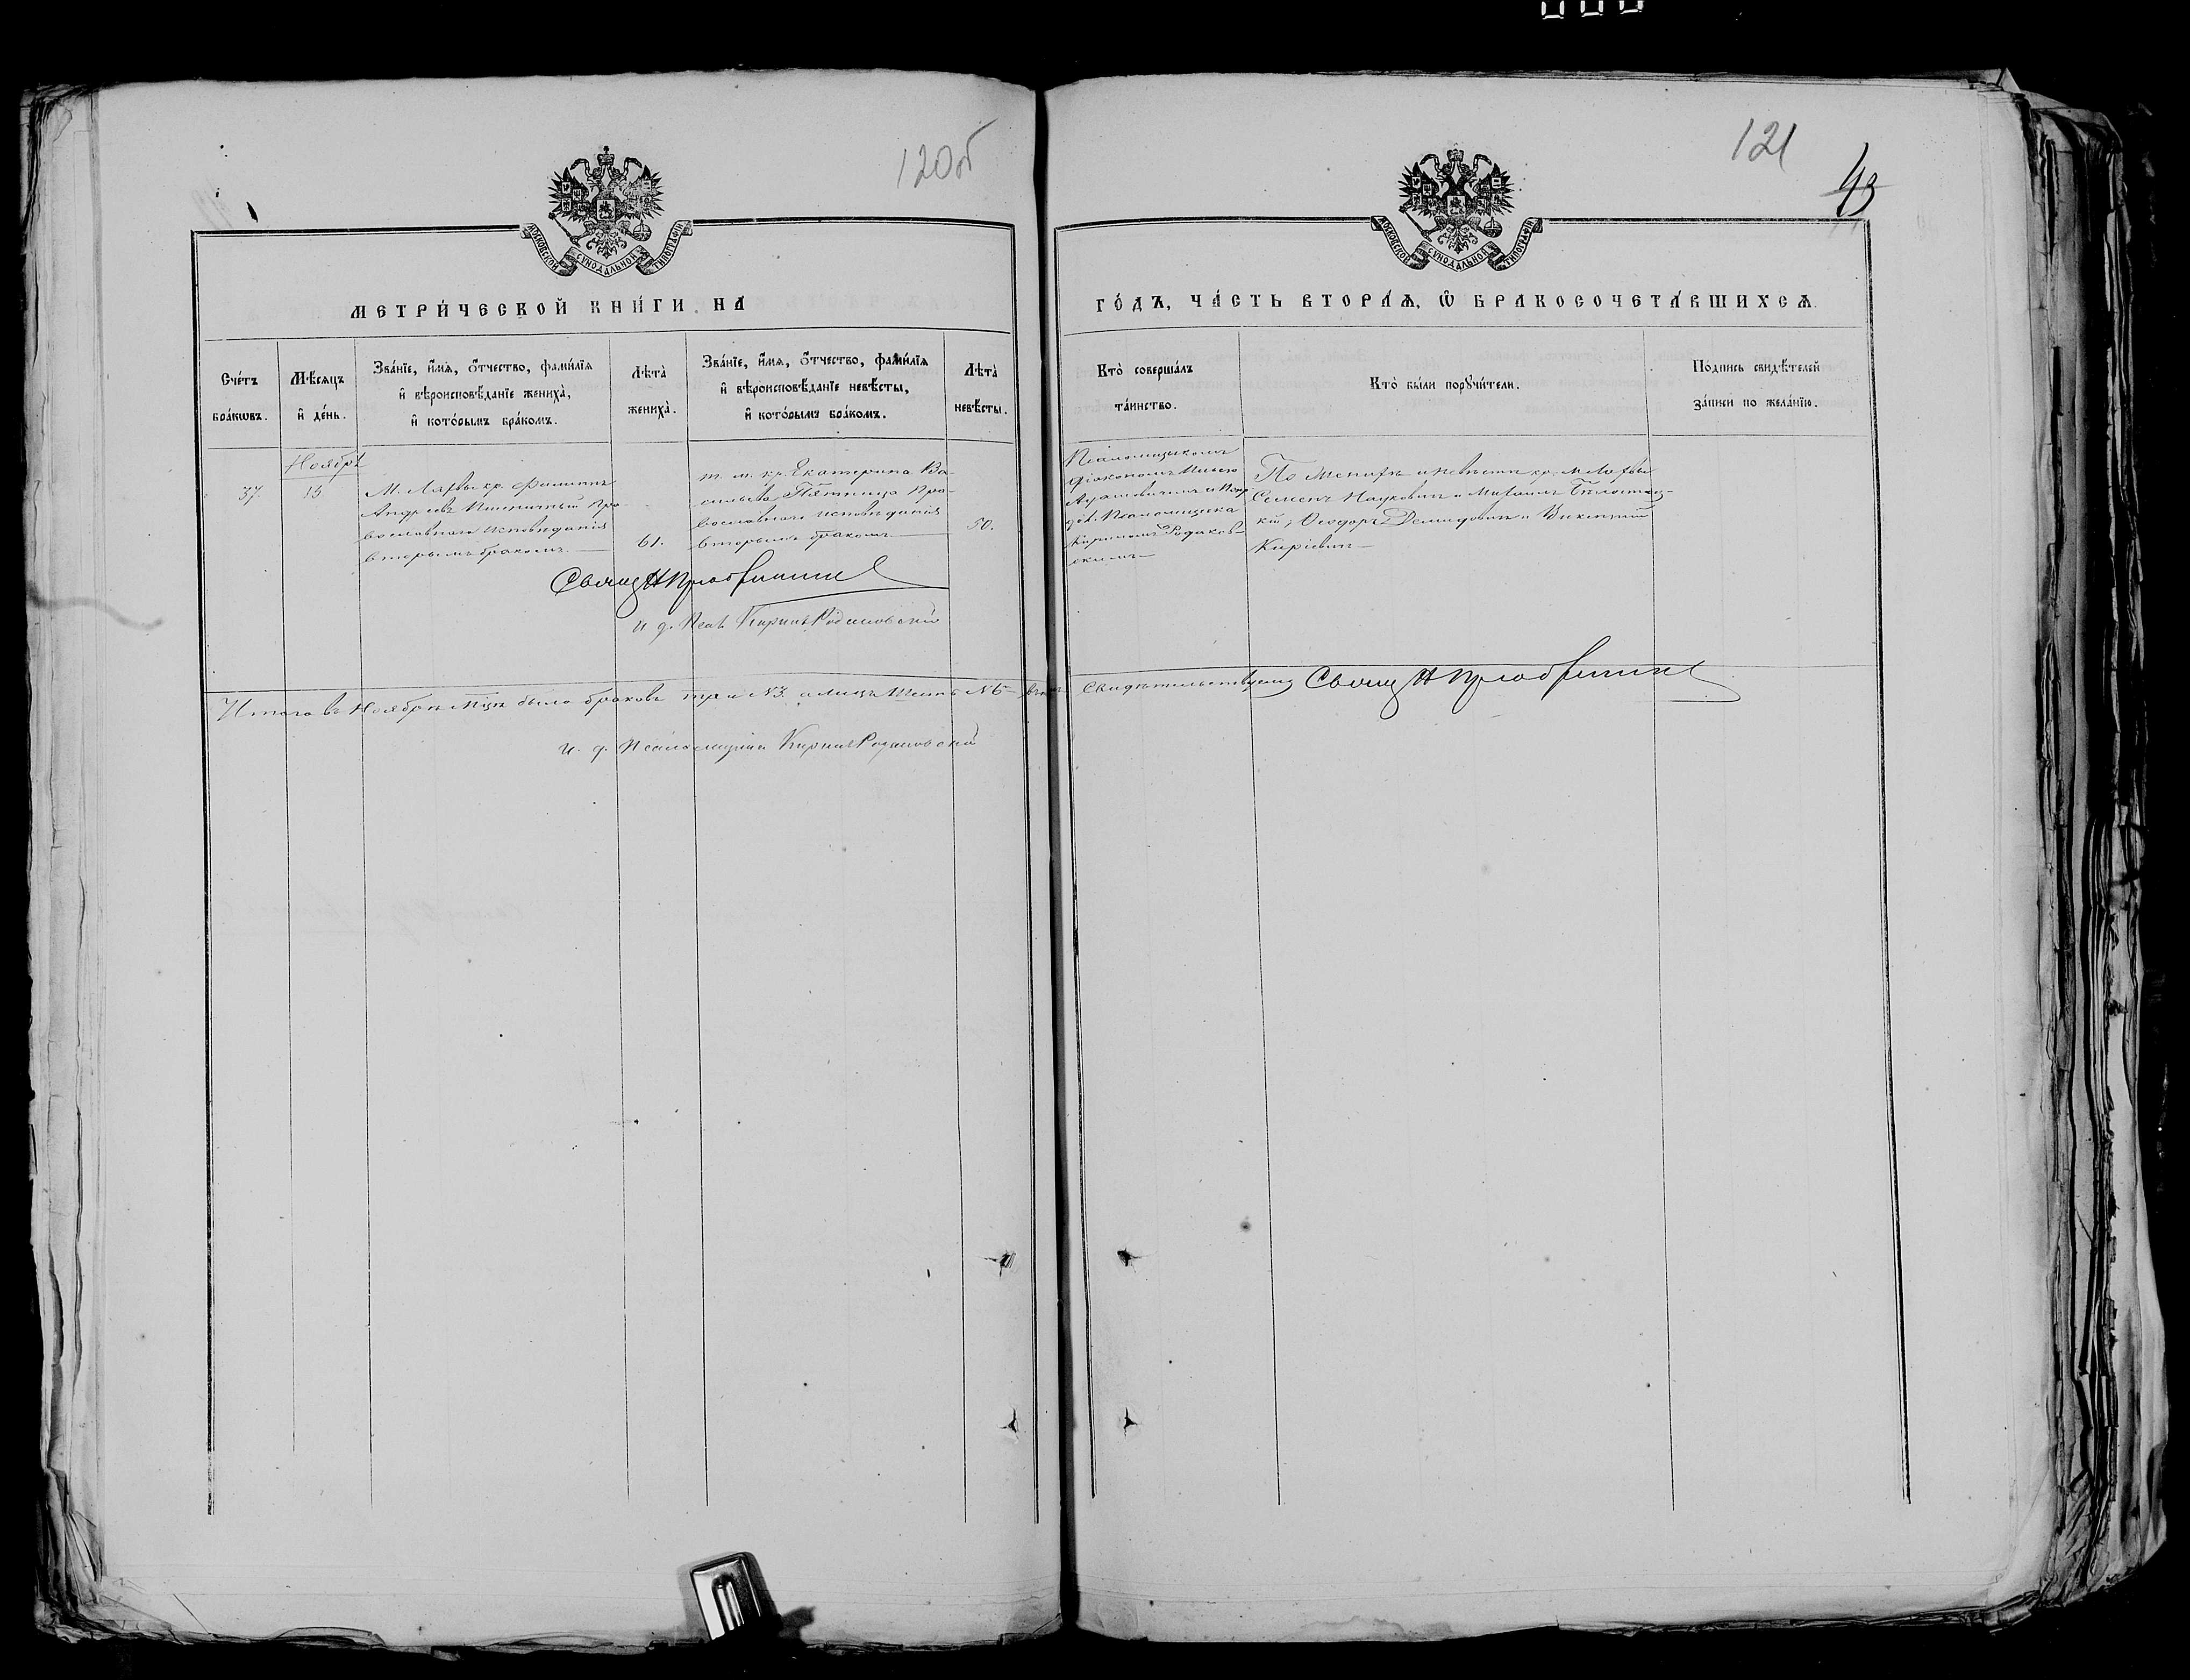 120об
МОСКОВСКОЙ СѴНОДАЛЬНОЙ ТИПОГРАФІИ
МЕТРИ́ЧЕСКОЙ КНИ́ГИ НА
Сче́тъ бра́кѡвъ.
Мѣ́сяцъ и де́нь.
Зва́нїе, и́мя, о́тчество, фами́лїя и вѣроисповѣ́данїе жениха̀, и кото́рымъ бра́комъ.
Лѣта̀ жениха̀.
Зва́нїе, и́мя, о́тчество, фами́лїя и вѣроисповѣ́данїе невѣ́сты, и кото́рымъ бра́комъ.
Лѣта̀ невѣ́сты.
37.
Ноябрь
15
кр. Филиппъ
Андреевъ Пшеничный Пра-
вославнаго исповѣданія
вторымъ бракомъ
61.
т. м. кр. Екатерина Ва-
сильева Пра-
вославнаго исповѣданія
вторымъ бракомъ
50.
Свящ
и. д. Псал Кириллъ
Итого въ Ноябрѣ м-цѣ было браковъ три №3. а лицъ шесть №6
и. д. Псаломщика Кириллъ
121
43
МОСКОВСКОЙ СѴНОДАЛЬНОЙ ТИПОГРАФІИ
ГО́ДЪ, ЧА́СТЬ ВТОРА́Я, Ѡ БРАКОСОЧЕТА́ВШИХСЯ.
Кто̀ соверша́лъ та́инство.
Кто̀ бы́ли порꙋчи́тели.
По́дпись свидѣ́телей за́писи по жела́нїю.
Псаломщикомъ
діакономъ
Псаломщика
По женихѣ и невѣстѣ кр. м.
Семенъ Наукович и Михаилъ
Ѳеодоръ Демидович и Викентій
Кирієвич
Свидѣтельствуемъ Свящ